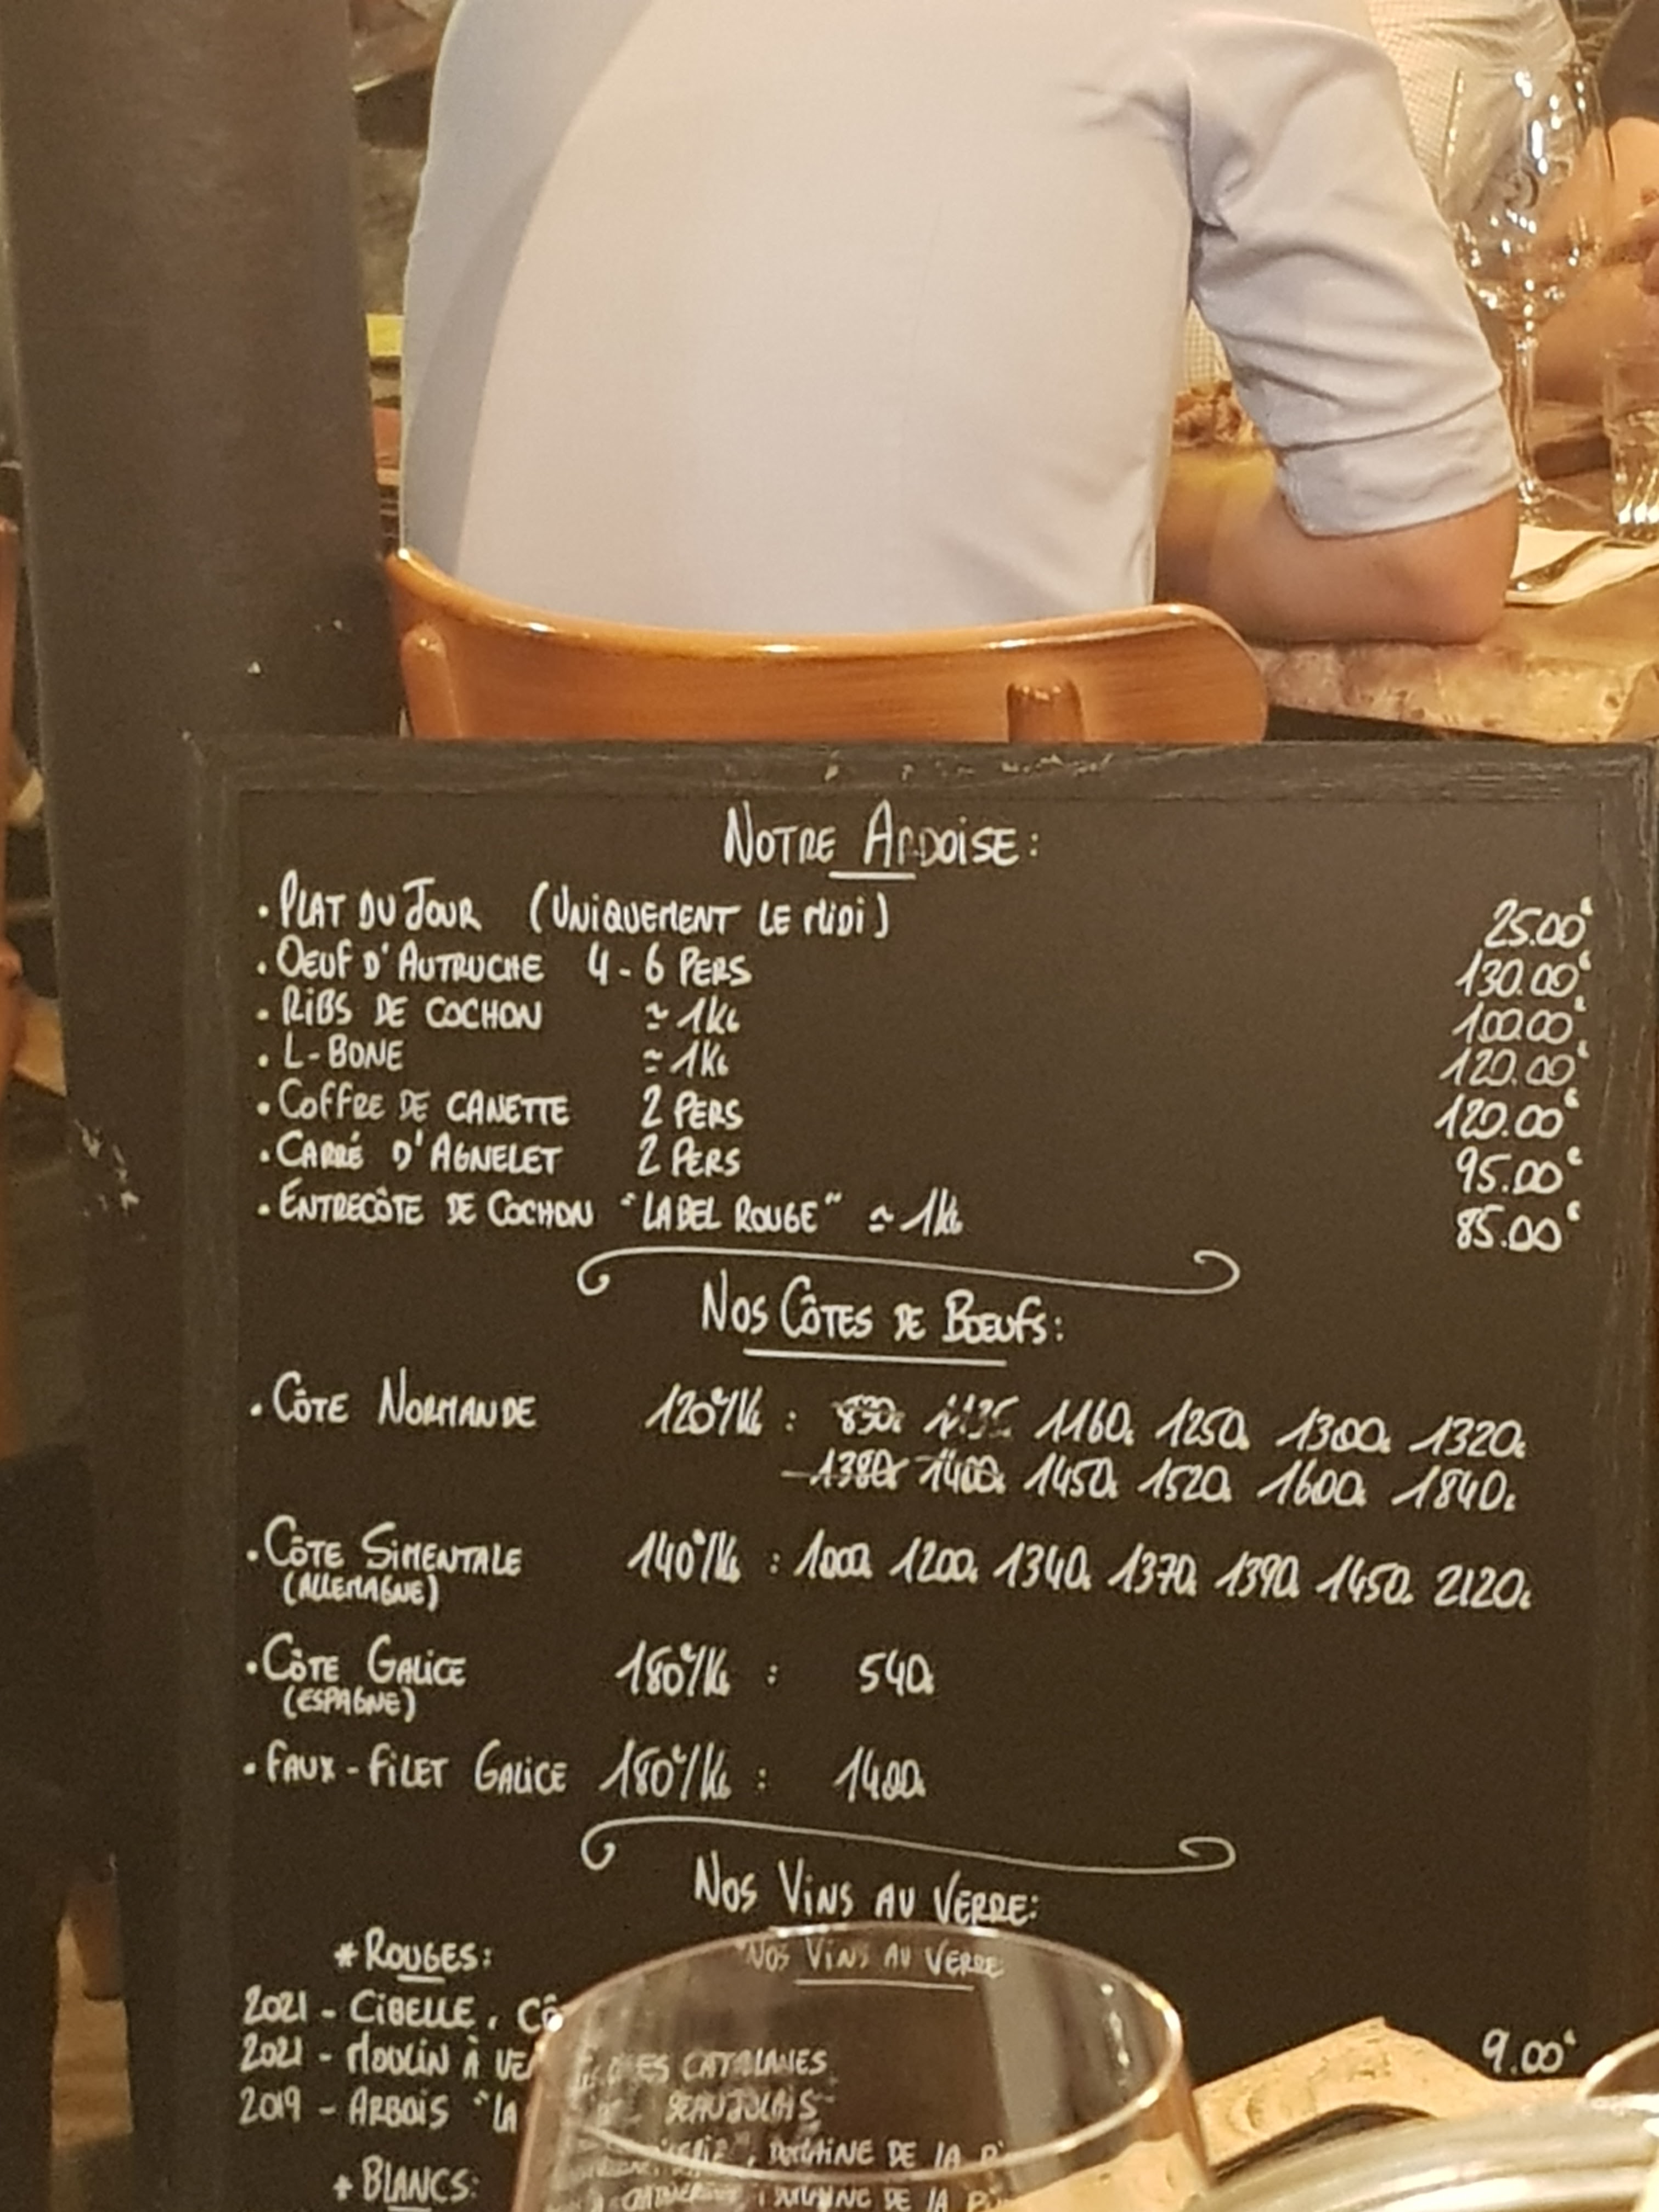 NOTRE ARDOISE:
• PLAT DU JOUR (UNIQUEMENT LE MIDI) 25.00€
• OEUF D'AUTRUCHE 4-6 PERS 130.00€
• RIBS DE COCHON ≃ 1KG 100.00€
• L-BONE ≃ 1KG 120.00€
• COFFRE DE CANETTE 2 PERS 120.00€
• CARRÉ D'AGNELET 2 PERS 95.00€
• ENTRECÔTE DE COCHON "LABEL ROUGE" ≃ 1KG 85.00€
NOS CÔTES DE BŒUFS:
• CÔTE NORMANDE 120€/KG : 830G 1160G 1250G 1300G 1320G
1380G 1400G 1450G 1520G 1600G 1840G
• CÔTE SIMENTALE 140€/KG : 1000G 1200G 1340G 1370G 1390G 1450G 2120G
(ALLEMAGNE)
• CÔTE GALICE 180€/KG : 540G
(ESPAGNE)
• FAUX-FILET GALICE 180€/KG : 1400G
NOS VINS AU VERRE:
NOS VINS AU VERRE
* ROUGES:
2021 - CIBELLE, CÔ
2021 - MOULIN À CATALANES 9.00€
2019 - ARBOIS "LA BEAUJOLAIS
DOMAINE DE LA
* BLANCS: DE LA